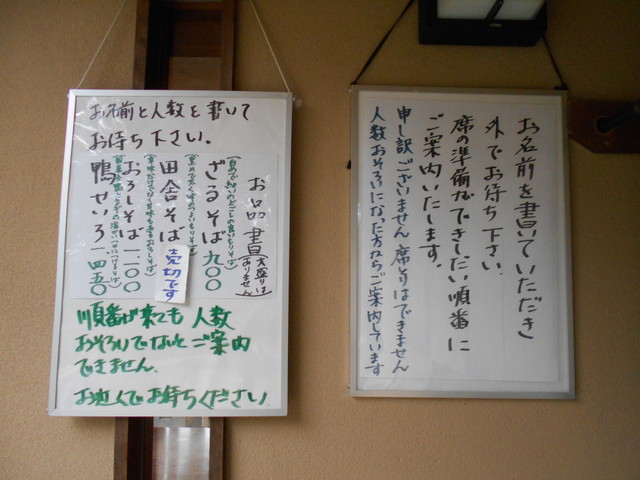 お名前と人数を書いて
お待ち下さい.
お品書
(大盛りはありません)
ざるそば 九〇〇
田舎そば
売切です
おろしそば 一.一〇〇
鴨せいろ 一.四五〇
順番が来ても人数
おそろいでないとご案内
できません.
お近くでお待ちください
お名前を書いていただき
外でお待ち下さい.
席の準備ができしだい順番に
ご案内いたします.
申し訳ございません席とりはできません
人数おそろいになった方からご案内しています